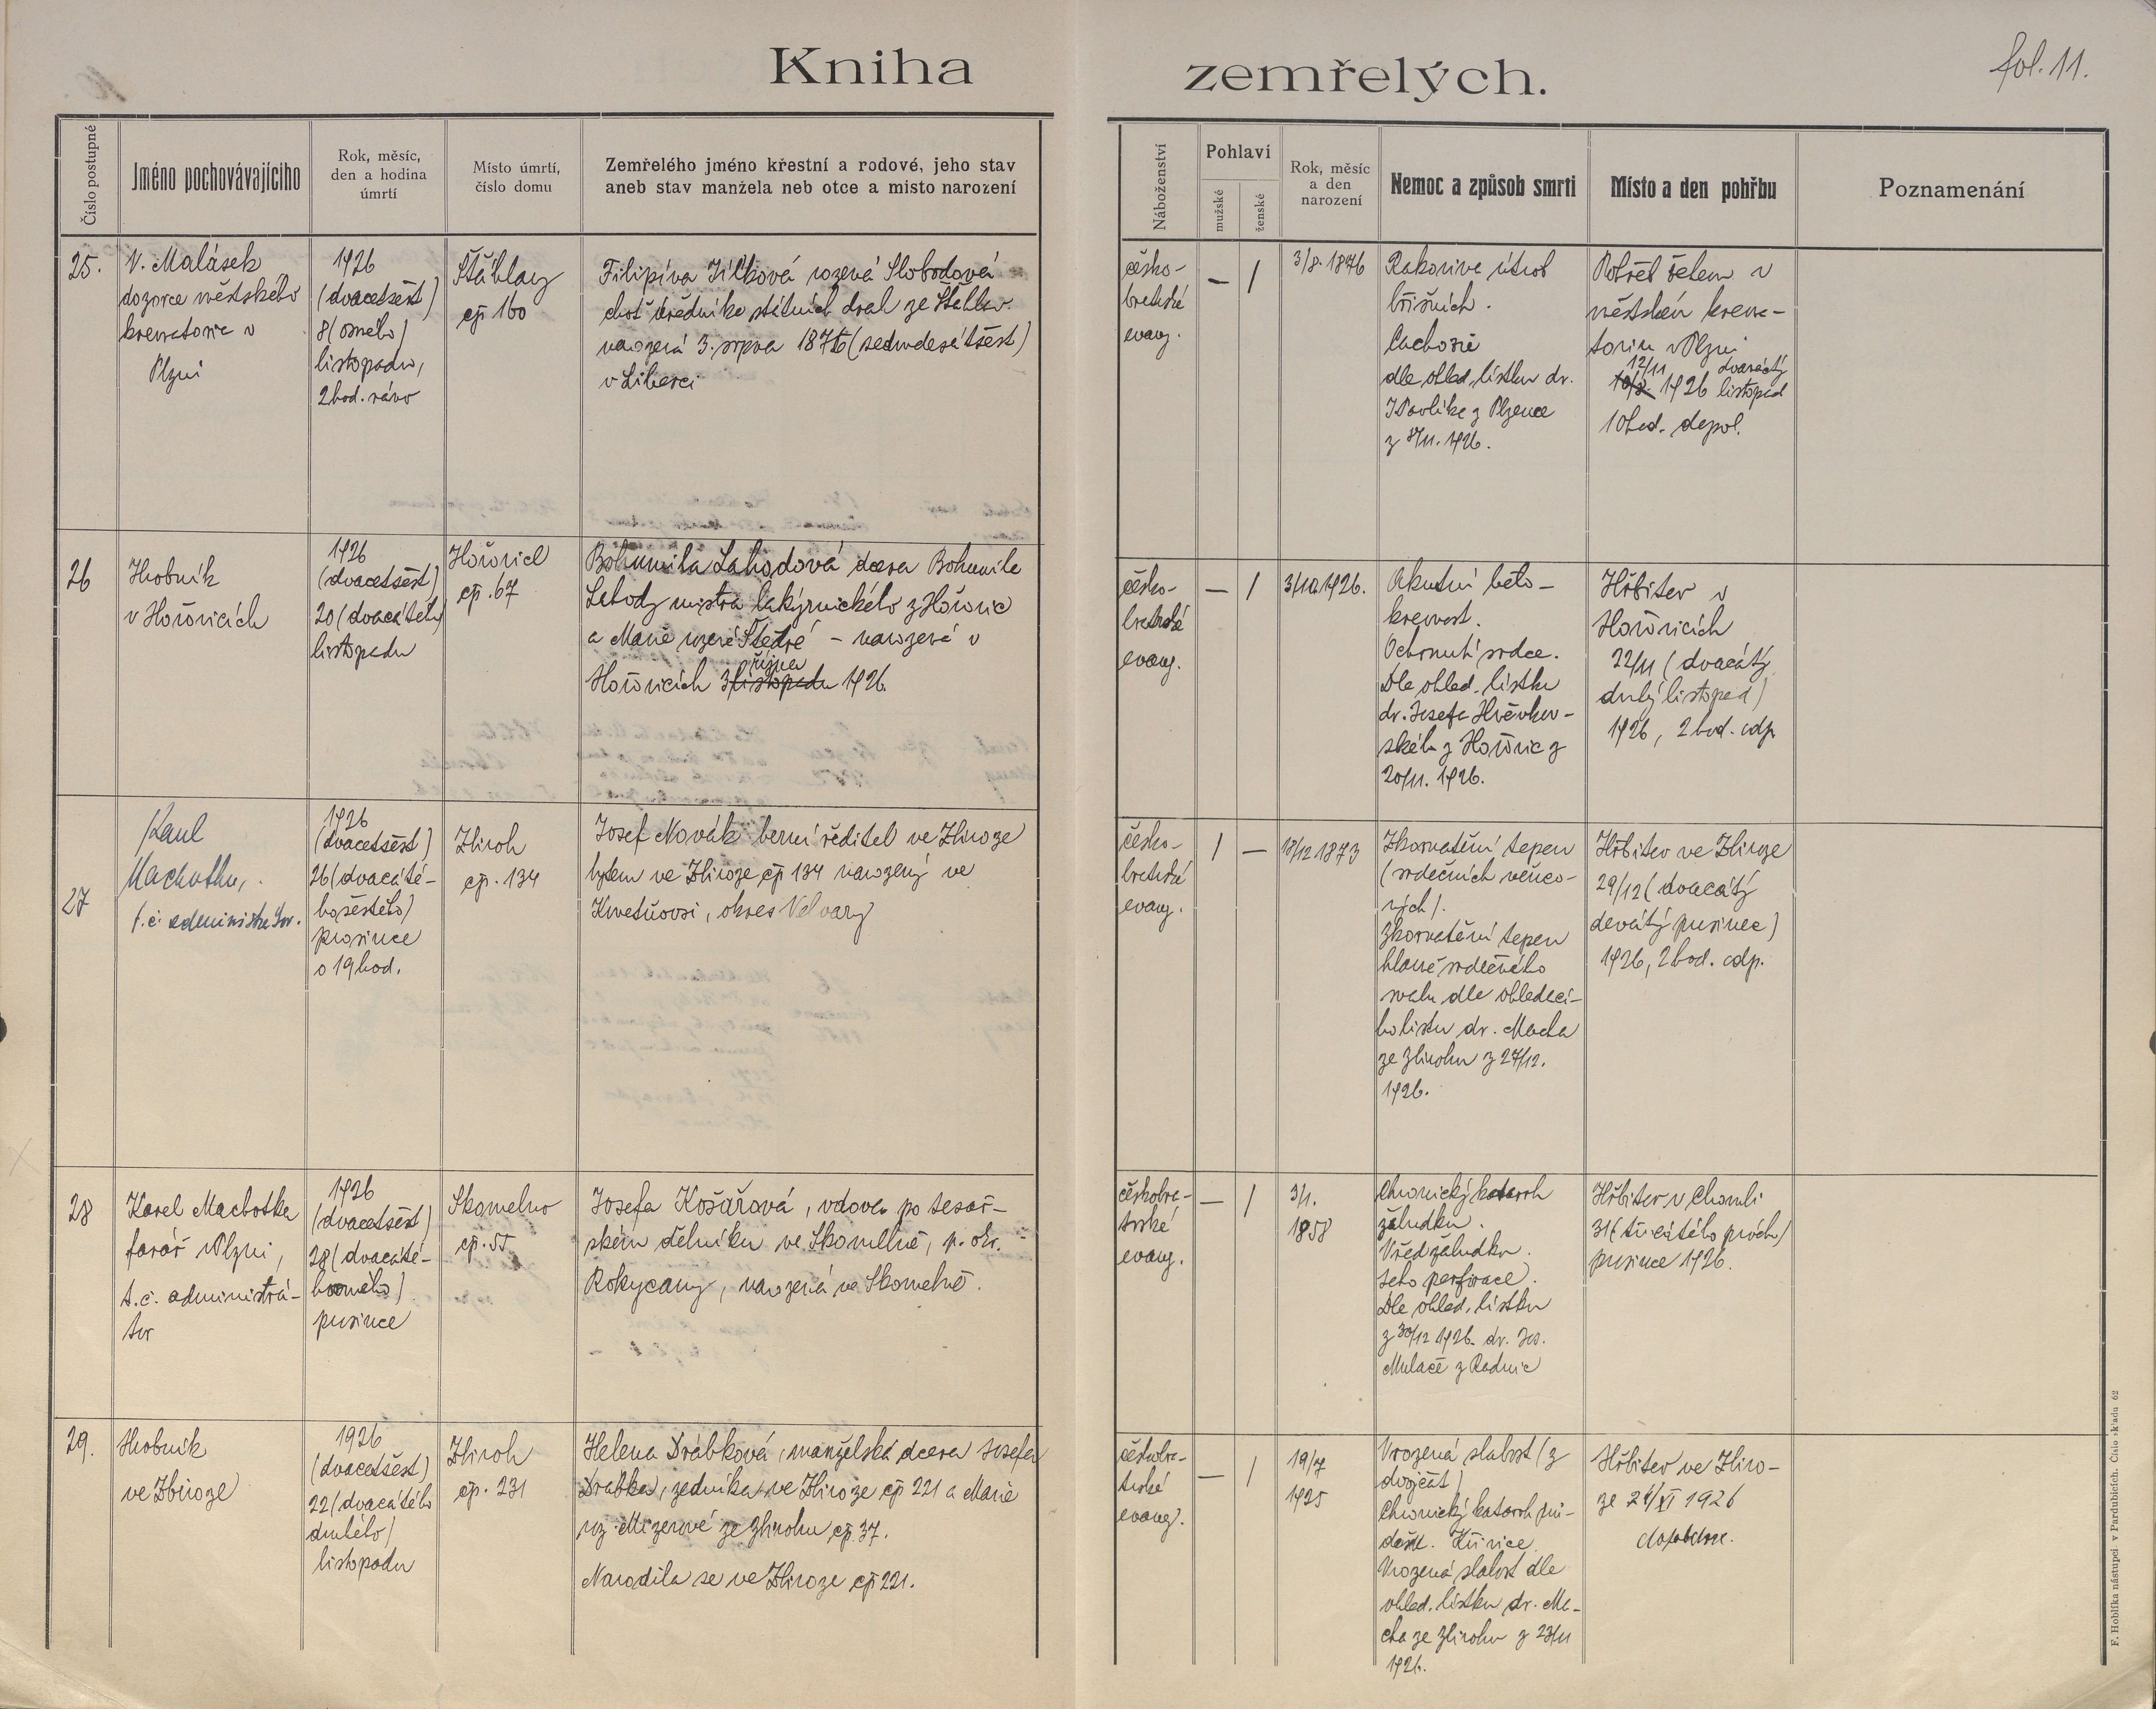 Kniha zemřelých.
fol. 11.
Číslo postupné
Jméno pochovávajícího
Rok, měsíc,
den a hodina
úmrtí
Místo úmrtí,
číslo domu
Zemřelého jméno křestní a rodové, jeho stav
aneb stav manžela neb otce a místo narození
Náboženství
Pohlaví
mužské
ženské
Rok, měsíc
a den
narození
Nemoc a způsob smrti
Místo a den pohřbu
Poznamenání
25.
V. Malásek
dozorce městského
krematoria v
Plzni
1926
(dvacetšest)
8 (osmého)
listopadu,
2 hod. ráno
Štáhlavy
čp 160
Filipína Jílková rozená Slobodová
choť úředníka státních drah ze Štáhlav
narozená 3. srpna 1876 (sedmdesátšest)
v Liberci
česko-
bratrské
evang.
— /
3/8. 1876
Rakovina útrob
břišních.
Cachexie
dle ohled. lístku dr.
J Pavlíka z Plzence
z 8/11. 1926.
Pohřeb žehem v
městském krema-
toriu v Plzni
12/11 dvanáctý
1926 listopad
10 hod. dopol.
26
Hrobník
v Hořovicích
1926
(dvacetšest)
20 (dvacátého)
listopadu
Hořovice
čp. 67
Bohumila Lahodová dcera Bohumila
Lahody mistra lakýrnického z Hořovic
a Marie rozené Štědré – narozená v
října
Hořovicích 3 listopadu 1926.
česko-
bratrské
evang.
— /
3/10 1926.
Akutní bělo-
krevnost.
Ochrnutí srdce.
Dle ohled. lístku
dr. Josefa
ského z Hořovic z
20/11. 1926.
Hřbitov v
Hořovicích
22/11 (dvacátý
druhý listopad)
1926, 2 hod. odp.
27
Karel
Machotka,
t. č. administrátor.
1926
(dvacetšest)
26 (dvacaté-
ho šestého)
prosince
o 19 hod.
Zbiroh
čp. 134
Josef Novák berní ředitel ve Zbiroze
bytem ve Zbiroze čp 134 narozený ve
Kmetiňovsi, okres Velvary
česko-
bratrské
evang.
/ —
18/12 1873
Zkornatění tepen
(srdečních věnco-
vých).
Zkornatění tepen
hlavně srdečního
svalu dle ohledací-
ho listu dr. Macha
ze Zbirohu z 27/12.
1926.
Hřbitov ve Zbiroze
29/12 (dvacátý
devátý prosinec)
1926, 2 hod. odp.
28
Karel Machotka
farář v Plzni,
t. č. administrá-
tor
1926
(dvacetšest)
28 (dvacaté-
ho osmého)
prosince
Skomelno
čp. 55
Josefa Košařová, vdova po tesař-
ském dělníku ve Skomelně, p. okr.
Rokycany, narozená ve Skomelně.
českobra-
trské
evang.
— /
3/1.
1858
Chronický katarrh
žaludku.
Vřed žaludku.
Jeho perforace.
Dle ohled. lístku
z 30/12 1926. dr. Jos.
Mulače z Radnic
Hřbitov v Chomli
31 (třicátého prvého)
prosince 1926.
29.
Hrobník
ve Zbiroze
1926
(dvacetšest)
22 (dvacátého
druhého)
listopadu
Zbiroh
čp. 231
Helena Drábková, manželská dcera Josefa
Drábka, zedníka ve Zbiroze čp 221 a Marie
roz. Mizerové ze Zbirohu čp. 37.
Narodila se ve Zbiroze čp 221.
českobra-
trské
evang.
— /
19/7
1925
Vrozená slabost (z
dvojčat)
Chronický katarrh prů-
dušk. Křivice.
Vrozená slabost dle
ohled. lístku dr. Ma-
cha ze Zbirohu z 23/11
1926.
Hřbitov ve Zbiro-
ze 24/XI 1926
F. Hoblíka nástupci v Pardubicích. Číslo skladu 62